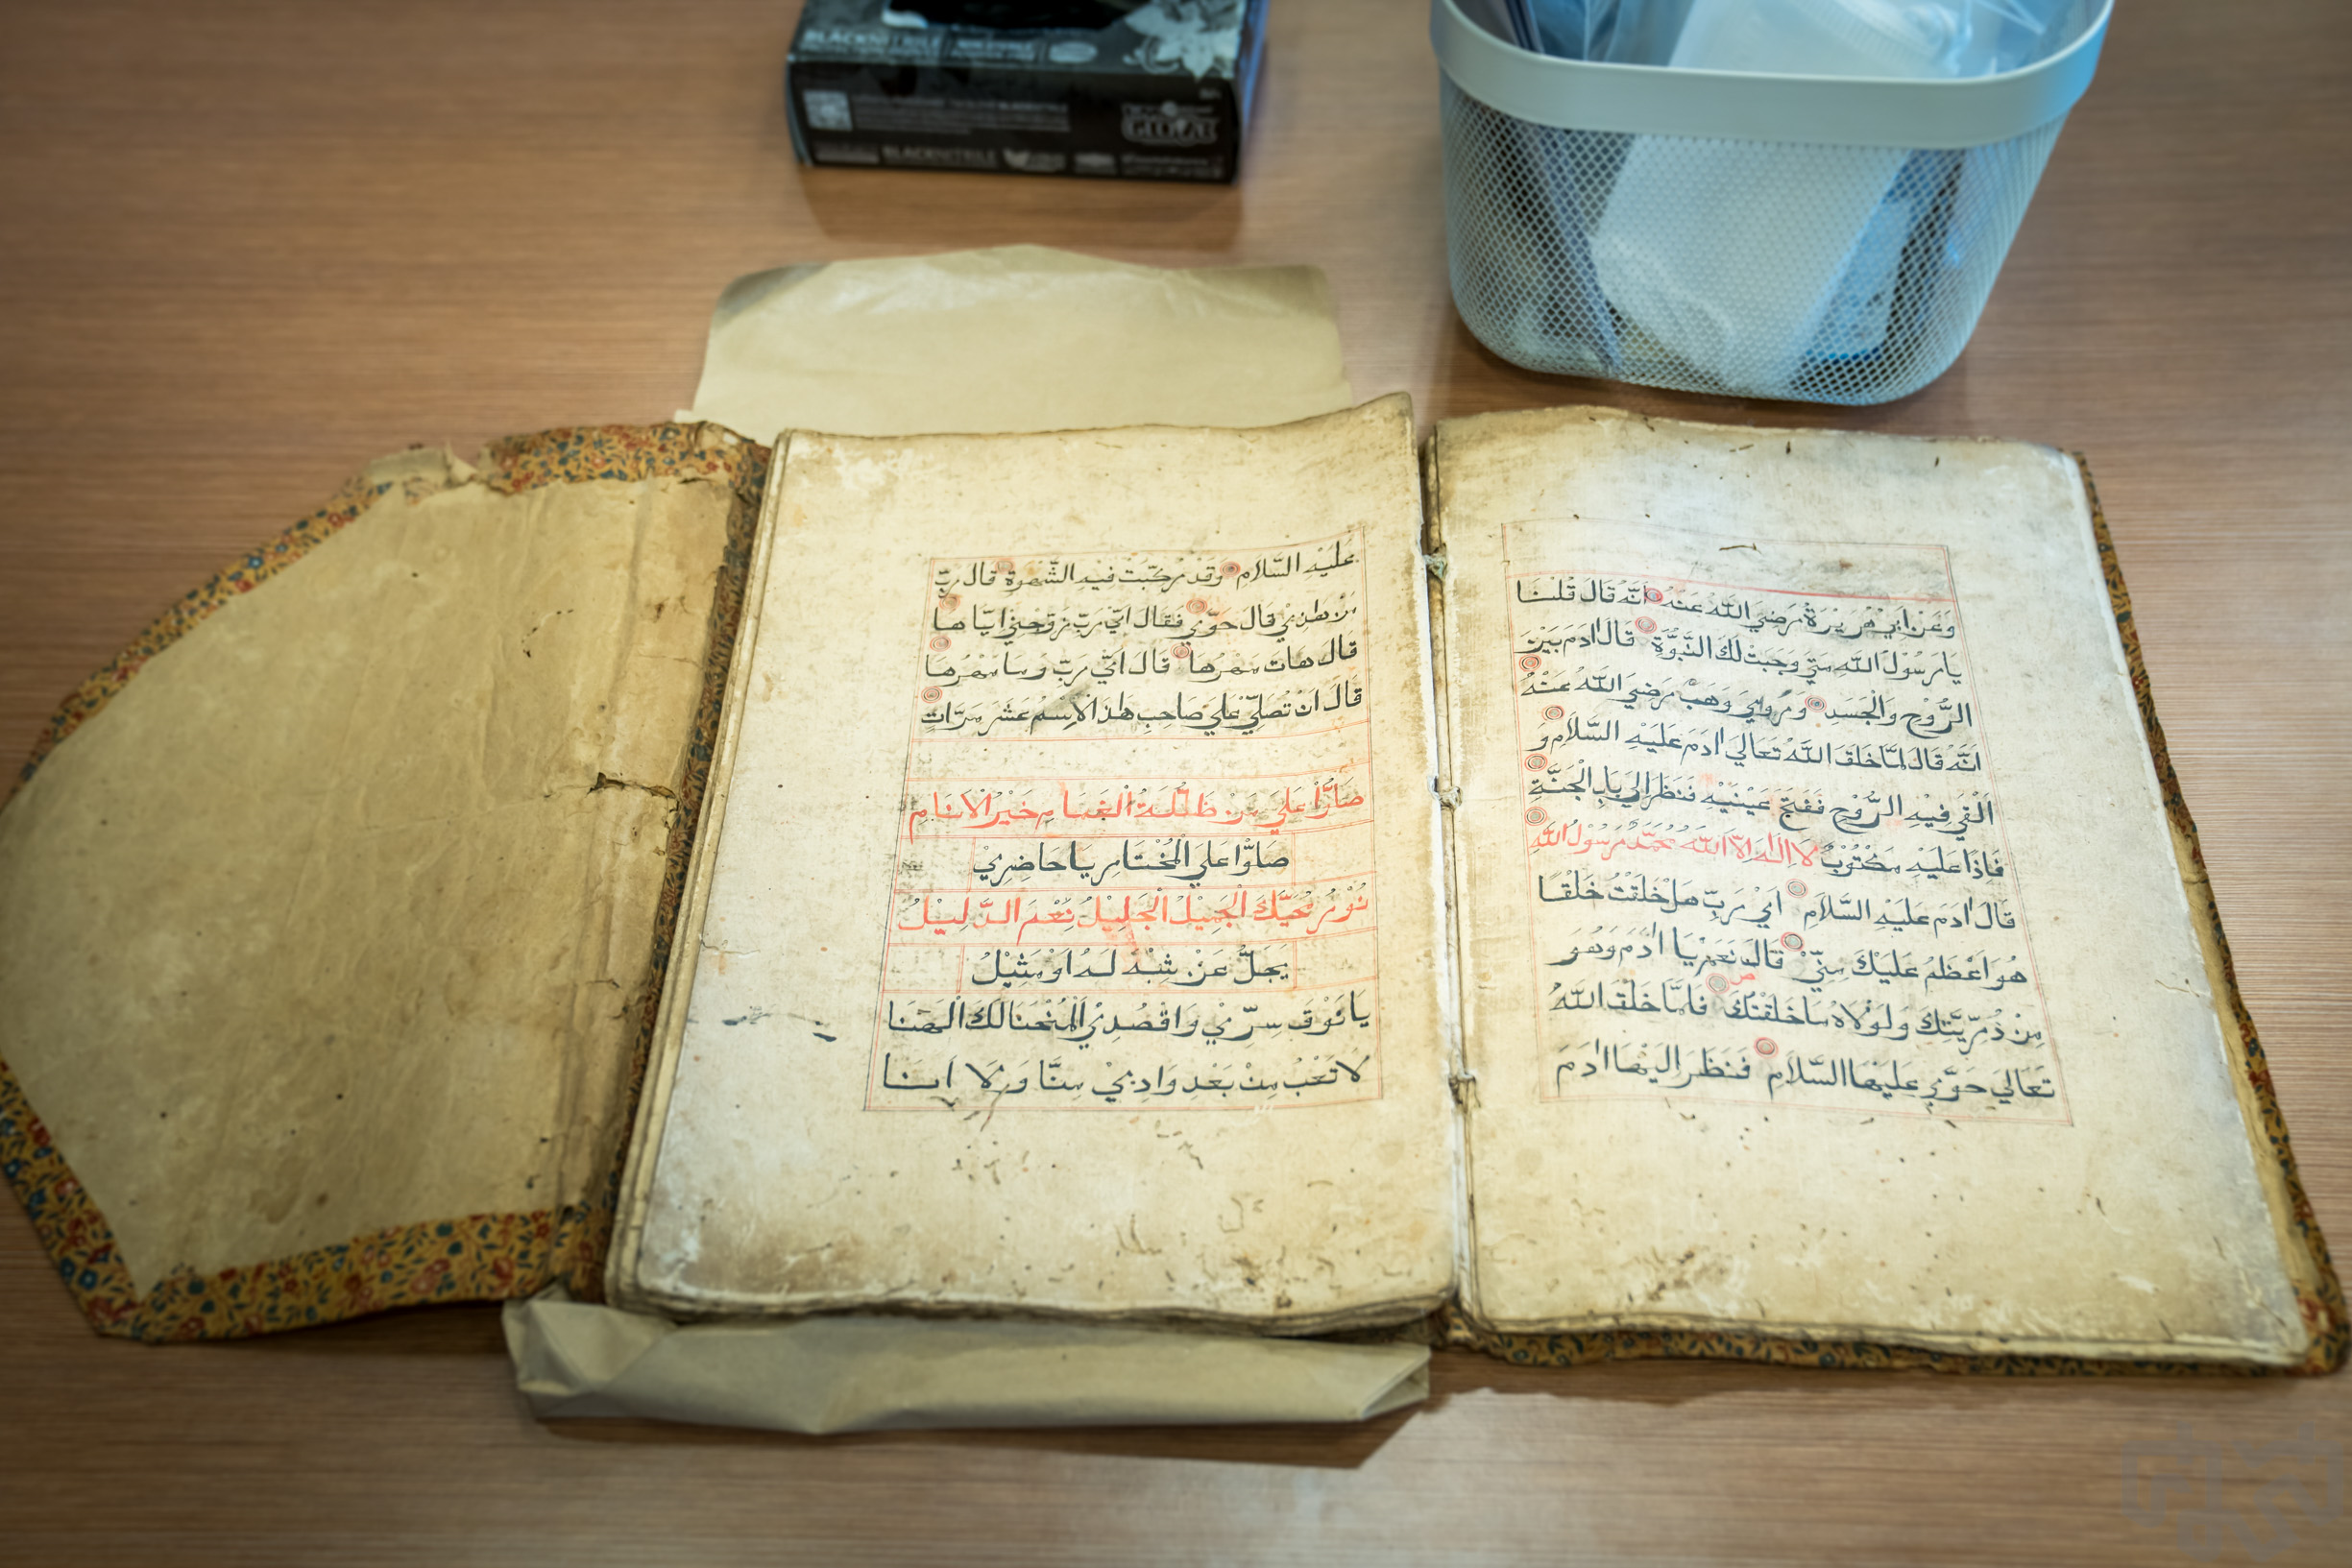 وَعَنْ اَبِي هُرَيْرَةَ رَضِيَ اللّٰهُ عَنْهُ اَنَّهُ قَالَ قُلْنَا
يَا رَسُوْلَ اللّٰهِ مَتَي وَجَبَتْ لَكَ النُّبُوَّةُ قَالَ اٰدَمَ بَيْنَ
الرُّوْحِ وَالْجَسَدِ وَرُوِيَ وَهَبْ رَضِيَ اللّٰهُ عَنْهُ
اَنَّهُ قَالَ لَمَّا خَلَقَ اللّٰهُ تَعَالَي اٰدَمَ عَلَيْهِ السَّلَامُ وَ
اَلْقَي فِيْهِ الرُّوْحِ فَفَتَحَ عَيْنَيْهِ فَنَظَرَ اِلَي بَابِ الْجَنَّةِ
فَاِذَا عَلَيْهِ مَكْتُوْبٌ لَا اِلٰهَ اِلَّا اللّٰهُ مُحَمَّدٌ رَسُوْلُ اللّٰهِ
قَالَ اٰدَمَ عَلَيْهِ السَّلَامُ اَيْ رَبِّ هَلْ خَلَقْتَ خَلْقًا
هُوَ اَعْظَمُ عَلَيْكَ مِنِّيْ قَالَ نَعَمْ يَا اٰدَمَ وَهُوَ
مِنْ ذُرِّيَّتِكَ وَلَوْلَاهُ مَا خَلَقْتُكَ فَلَمَّا خَلَقَ اللّٰهُ
تَعَالَي حَوَّي عَلَيْهَا السَّلَامُ فَنَظَرَ اِلَيْهَا اٰدَمَ
عَلَيْهِ السَّلَامُ وَقَدْ رُكِّبَتْ فِيْهِ الشَّهْوَةُ قَالَ رَبِّ
مَنْ هٰذِي قَالَ حَوَّي فَقَالَ اَيْ رَبِّ زَوِّجْنِي اِيَّاهَا
قَالَ هَاتَ مَهْرَهَا قَالَ اَيْ رَبِّ وَمَا مَهْرُهَا
قَالَ اَنْ تُصَلِّيْ عَلَي صَاحِبِ هٰذَا الْاِسْمِ عَشَرَ مَرَّاتٍ
صَلُّوْا عَلَي مَنْ ظَلَّلَهُ الْغَمَامِ خَيْرُ الْاَنَامِ
صَلُّوْا عَلَي الْمُخْتَارِ يَا حَاضِرِيْ
نُوْرُ مُحَيَّكَ الْجَمِيْلُ الْجَلِيْلُ نِعْمَ الدَّلِيْلُ
يَجَلُّ عَنْ شِبْهٍ لَهُ اَوْ مَثِيْلُ
يَا نُوْقَ سِرِّيْ وَاقْصُدِيْ الْمُنْحَنَا لَكَ الْهَنَا
لَا تَعْبُ مِنْ بَعْدِ وَادِيْ مِنًّا وَلَا اَنَا
BLACK NITRILE
GLOVE
BLACK NITRILE